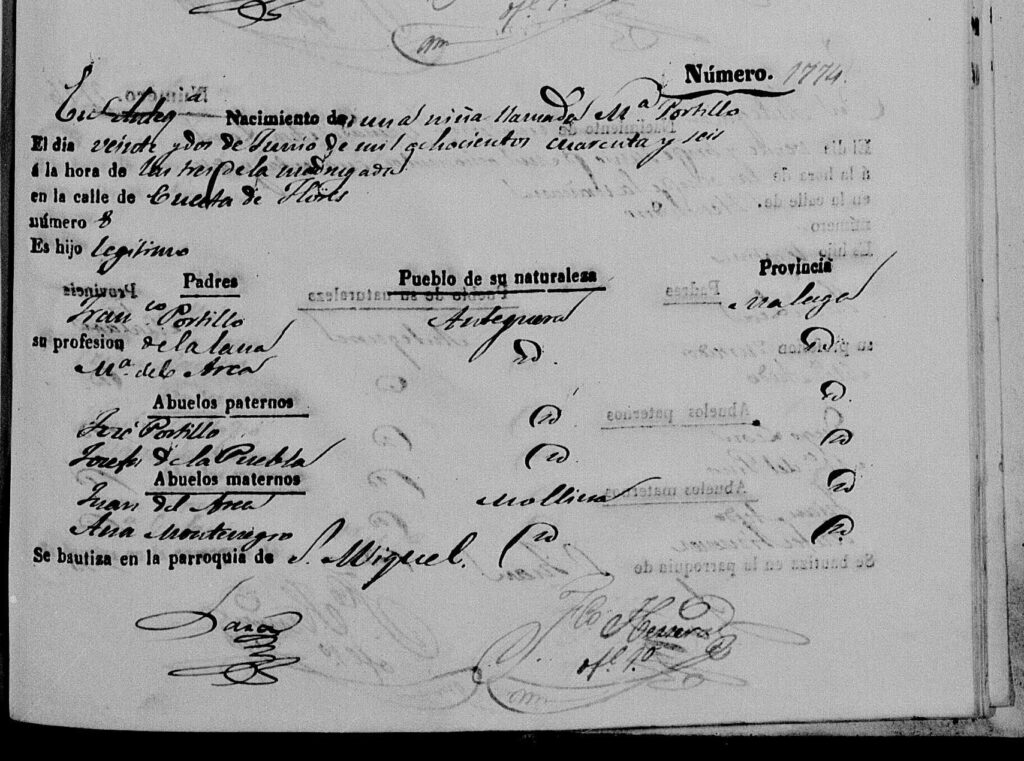 Número. 1774.
En Anteqª Nacimiento de una niña llamada Mª Portillo
El dia veinte y dos de Junio de mil ochocientos cuarenta y seis
á la hora de las tres de la madrugada
en la calle de Cuesta de Flores
número 8
Es hijo legitimo
Padres Pueblo de su naturaleza Provincia
Franco Portillo Antequera Malaga
su profesion de la lana
Mª del Arca id. id.
Abuelos paternos
José Portillo id id.
Josefa de la Puebla id id
Abuelos maternos
Juan del Arca Mollina id
Ana Montenegro id id.
Se bautiza en la parroquia de S. Miguel.
Herrera
ofl. 1.º